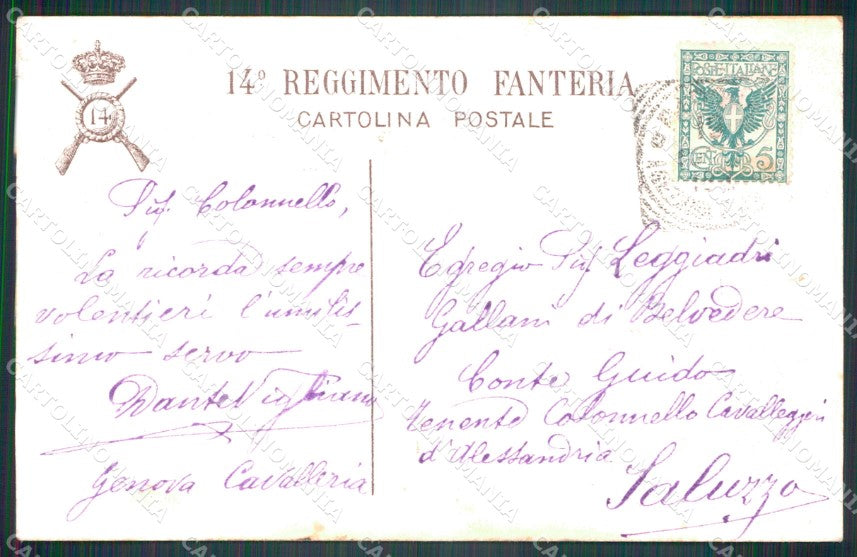 14
14º REGGIMENTO FANTERIA
CARTOLINA POSTALE
POSTE · ITALIANE
CENT. 5
Sig. Colonnello,
La ricorda sempre
volentieri l'umilis-
simo servo
Dante Vigliano
Genova Cavalleria
Egregio Sig. Leggiadri
Gallani di Belvedere
Conte Guido
Tenente Colonnello Cavalleggeri
d'Alessandria
Saluzzo
CARTOLINOMANIA